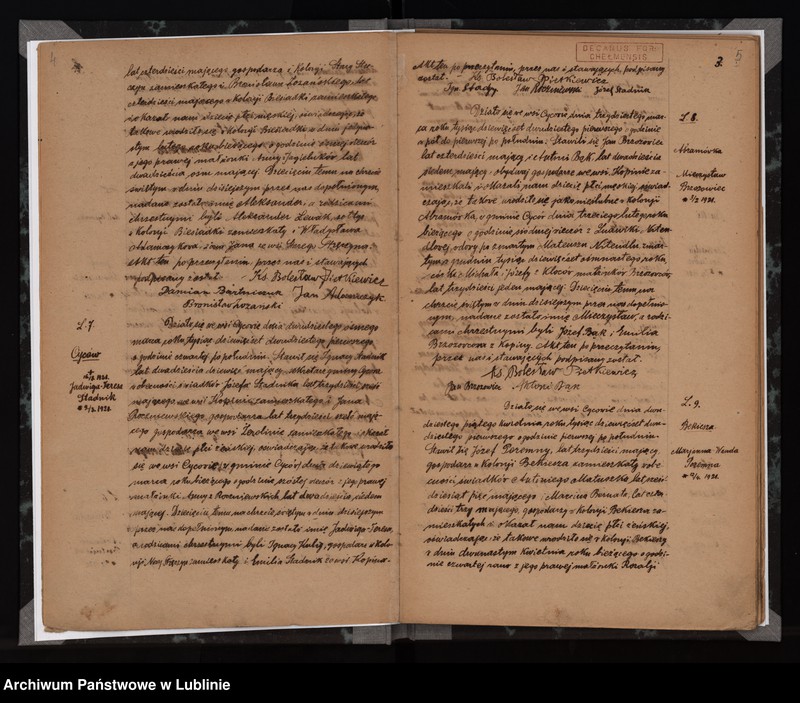 lat czterdzieści mającego gospodarza z Kolonji Stary
i Bronisława Łozańskiego lat
czterdzieści mającego z Kolonji Biesiadki zamieszkałego,
i okazał nam dziecię płci męskiej, oświadczając, że
takowe urodziło się z Kolonji Biesiadki w dniu
lutego o godzinie
z jego prawej małżonki Anny z Jagiełłów lat
dwadzieścia osm mającej. Dziecięciu temu na chrzcie
świętym w dniu dzisiejszym przez nas dopełnionym,
nadane zostało imię Aleksander, a rodzicami
chrzestnymi byli Aleksander
z Kolonji Biesiadki zamieszkały i Władysława
Adamczykowa żona Jana ze wsi Starego
Akt ten po przeczytaniu przez nas i stawających
podpisany został. Ks Bolesław Pietkiewicz
Damian Jan Adamczyk
Bronisław Łozański
Ł. 7.
Cyców
Jadwiga-Teresa
Stadnik
* 9/3. 1921.
Działo się we wsi Cycowie dnia dwudziestego ósmego
marca roku tysiąc dziewięćset dwudziestego pierwszego
o godzinie czwartej po południu. Stawił się Ignacy Stadnik
lat dwadzieścia dziewięć mający, sekretarz gminy Cyców
w obecności świadków Józefa Stadnika lat trzydzieści
mającego we wsi zamieszkałego i Jana
Roczniewskiego, gospodarza lat trzydzieści sześć mają-
cego gospodarza we wsi zamieszkałego i okazał
nam dziecię płci żeńskiej, oświadczając, że takowe urodziło
się we wsi Cycowie, w gminie Cyców, dnia dziewiątego
marca roku bieżącego o godzinie szóstej wieczór z jego prawej
małżonki Anny z Roczniewskich, lat dwadzieścia siedem
mającej. Dziecięciu temu, na chrzcie świętym w dniu dzisiejszym
przez nas dopełnionym, nadane zostało imię Jadwiga-Teresa,
a rodzicami chrzestnymi byli Ignacy gospodarz w Kolo-
nji Nowy zamieszkały i Emilia Stadnik ze wsi
3.
DECANUS FOR.
CHEŁMENSIS
Akt ten po przeczytaniu, przez nas i stawających, podpisany
został. Ks. Bolesław Pietkiewicz
Ign Stadny Jan Roczniewski Józef Stadnik
Ł. 8.
Abramówka
Mieczysław
Brzozowiec
* 3/2 1921.
Działo się we wsi Cycowie dnia trzydziestego mar-
ca roku tysiąc dziewięćset dwudziestego pierwszego o godzinie
w pół do pierwszej po południu. Stawili się Jan Brzozowiec
lat czterdzieści mający i Antoni Bąk, lat dwadzieścia
siedem mający, obydwaj gospodarze we wsi Kopinie za-
mieszkali i okazali nam dziecię płci męskiej, oświad-
czając, że takowe urodziło się jako nieślubne w Kolonji
Abramówka, w gminie Cyców dnia trzeciego lutego roku
bieżącego o godzinie siódmej wieczór z Ludwiki
wdowy po zmarłym Mateuszu zmar-
łym w grudniu tysiąc dziewięćset osmnastego roku,
córki Michała i Józefy z Kloców małżonków Brzozowców,
lat trzydzieści jeden mającej. Dziecięciu temu, na
chrzcie świętym w dniu dzisiejszym przez nas dopełnio-
nym, nadane zostało imię Mieczysław, a rodzi-
cami chrzestnymi byli Józef Bąk i Emilia
Brzozowcowa z Kopiny. Akt ten po przeczytaniu,
przez nas i stawających podpisany został.
Ks Bolesław Pietkiewicz
Jan Brzozowiec Antoni Bąk
Ł. 9.
Bekiesza
Marjanna Wanda
* 12/4. 1921.
Działo się we wsi Cycowie dnia dwu-
dziestego piątego kwietnia, roku tysiąc dziewięćset dwu-
dziestego pierwszego o godzinie pierwszej po południu.
Stawił się Józef lat trzydzieści mający,
gospodarz w Kolonji Bekiesza zamieszkały, w obe-
cności świadków Antoniego Matuszka, lat sześć-
dziesiąt pięć mającego i Marcina Bernata, lat czter-
dzieści trzy mającego gospodarzy w Kolonji Bekiesza za-
mieszkałych i okazał nam dziecię płci żeńskiej,
oświadczając że takowe urodziło się w Kolonji Bekiesza
w dniu dwunastym kwietnia, roku bieżącego o godzi-
nie czwartej rano z jego prawej małżonki Rozalji
Archiwum Państwowe w Lublinie